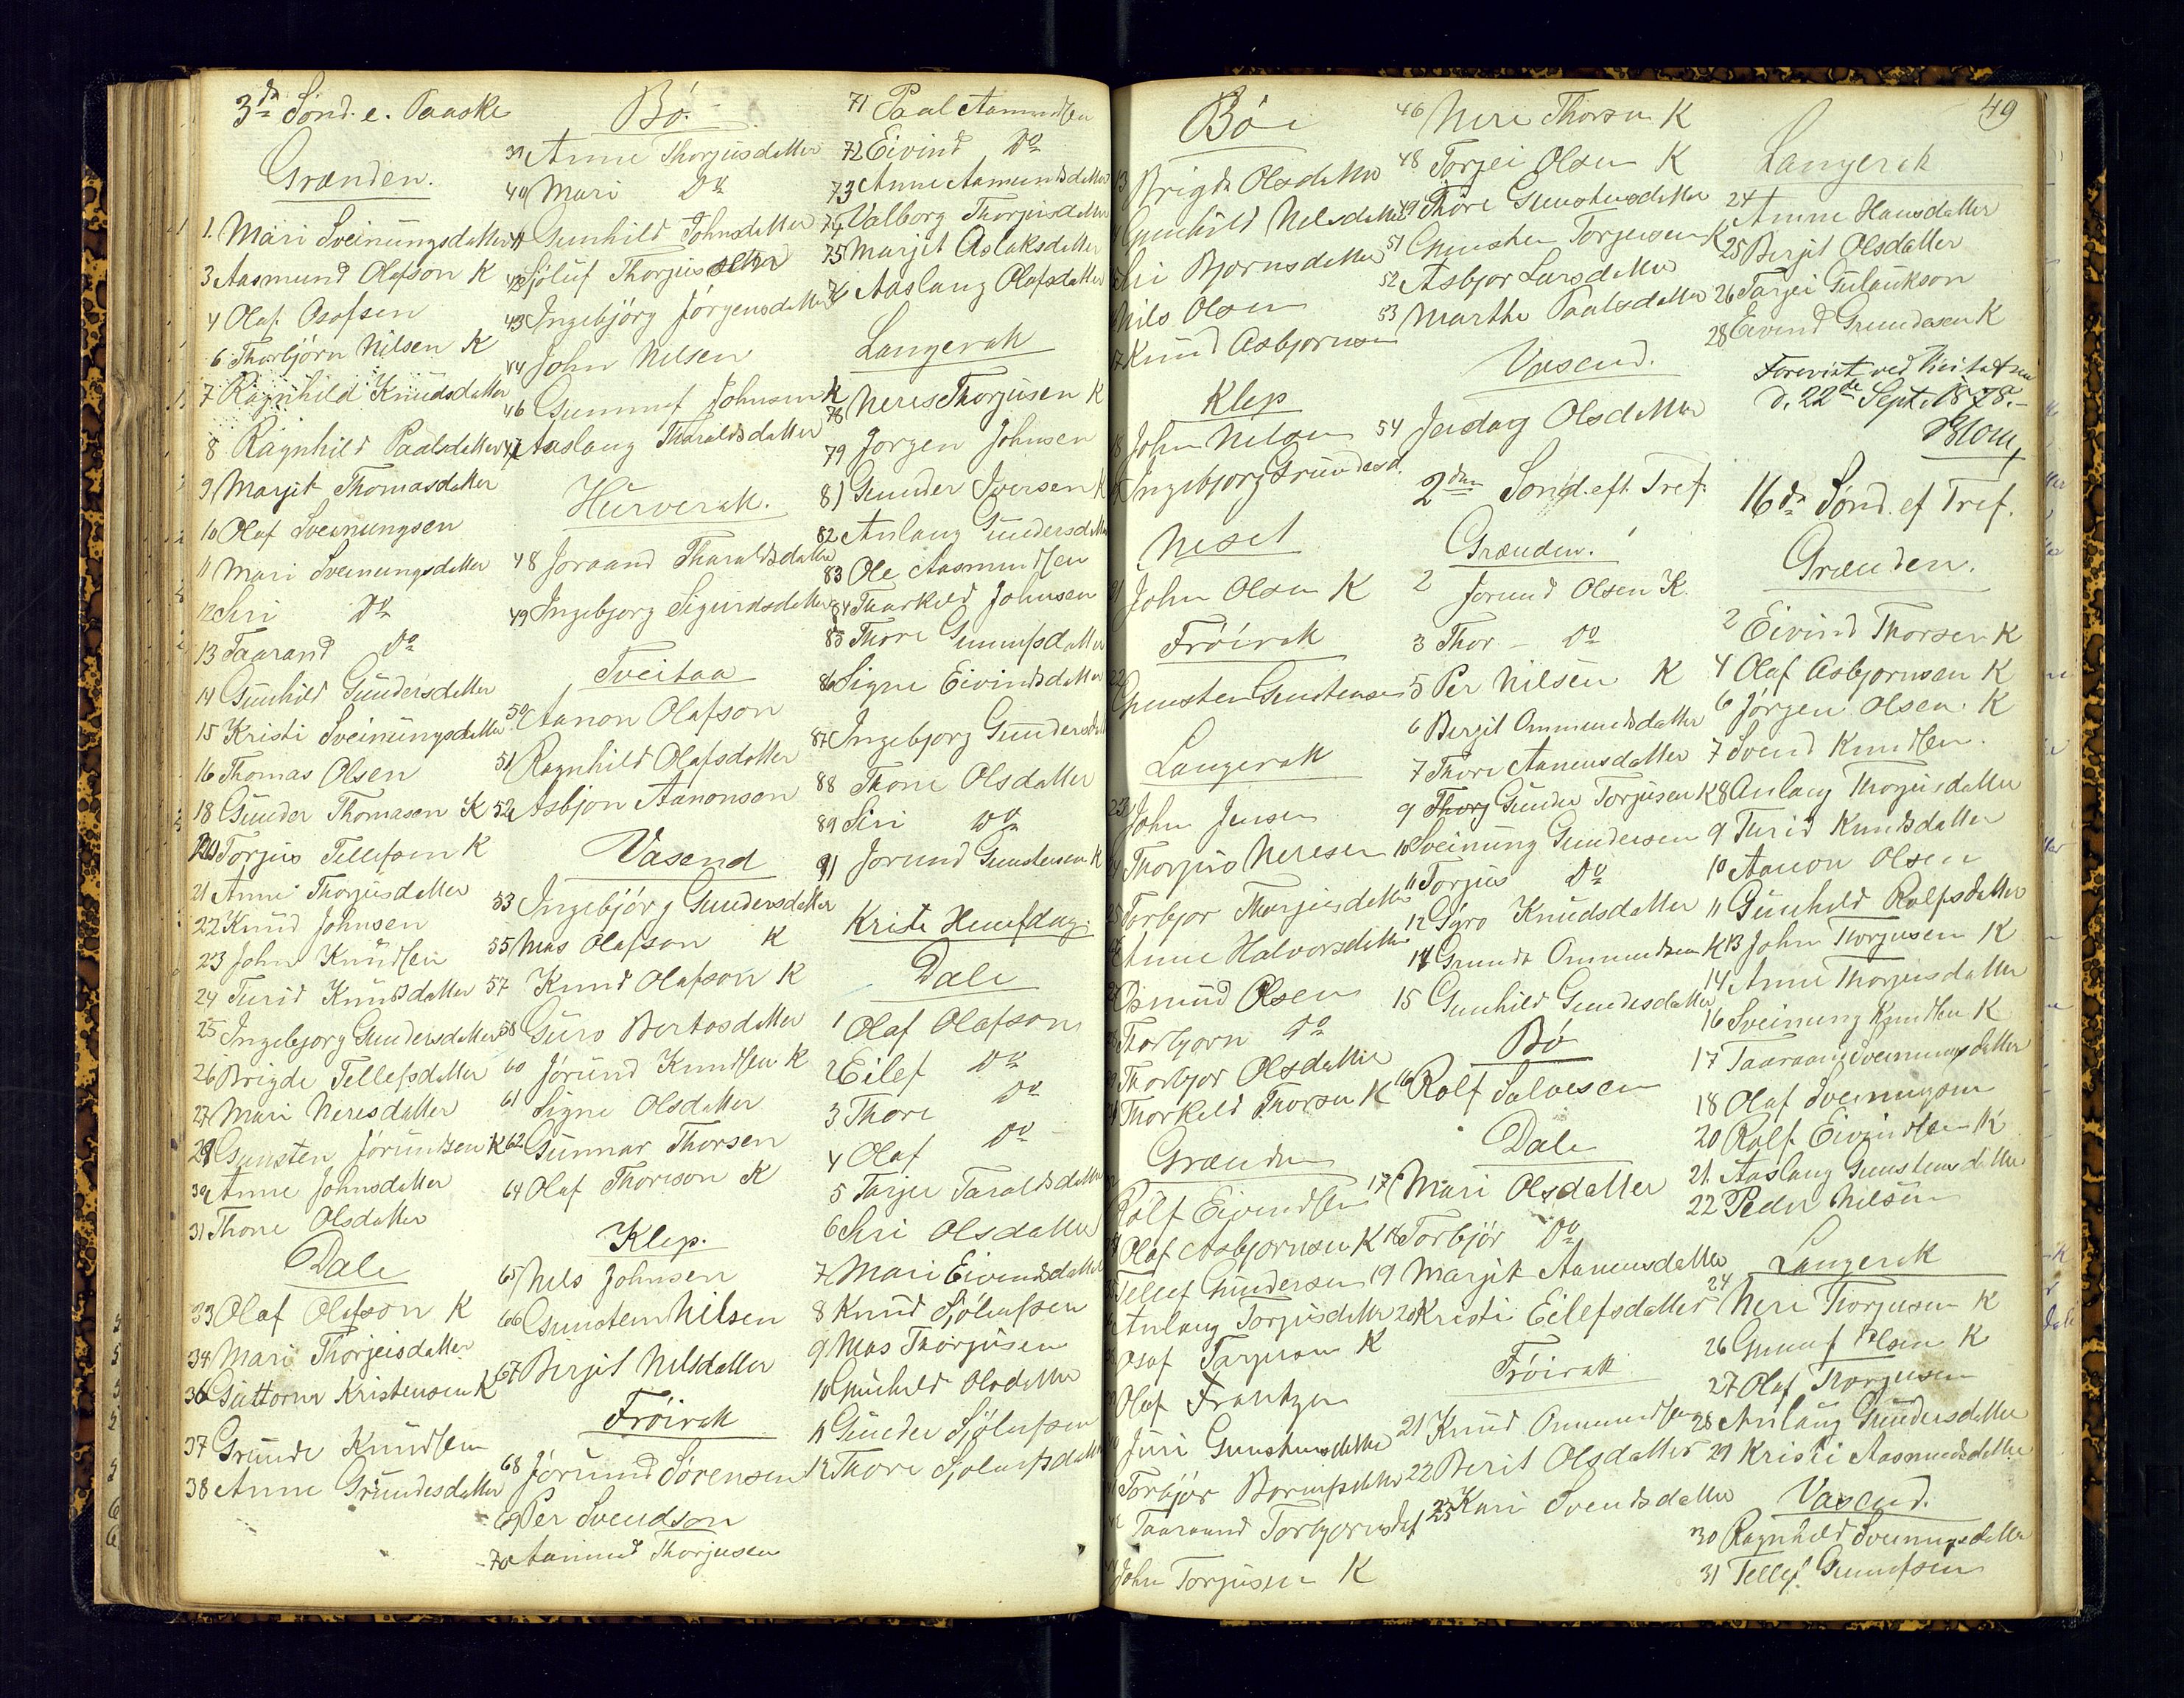 3d Sönd. e. Paaske
Grænden.
1. Mari Sveinungsdatter
3 Aasmund Olafson K
4 Olaf Osofsen
6 Thorbjörn Nilsen K
7 Ragnhild Knudsdatter
8 Ragnhild Paalsdatter
9 Margit Thomasdatter
10 Olaf Sveinungsen
11 Mari Sveinungsdatter
12 Siri Do
13 Taarand Do
14 Gunhild Gundersdatter
15 Kristi Sveinungsdatter
16 Thomas Olsen
18 Gunder Thomason K
20 Torjus Tellefsen K
21 Anne Thorjusdatter
22 Knud Johnsen
23 John Knudsen
24 Turid Knudsdatter
25 Ingebjorg Gundersdatter
26 Brigde Tellefsdatter
27 Mari Neresdatter
29 Gunsten Jörundsen K
30 Anne Johnsdatter
31 Thone Olsdatter
Dale
33 Olaf Olafson K
34 Mari Thorjeisdatter
36 Guttorm Kristensen K
37 Grunde Knudsen
38 Anne Grundesdatter
Bö.
39 Anne Thorjusdatter
40 Mari Do
41 Gunhild Johnsdatter
42 Sjöluf Thorjus
43 Ingebjörg Jörgensdatter
44 John Nilsen
46 Gunnuf Johnsen K
47 Aaslaug Tharaldsdatter
Hurverak.
48 Joraand Tharaldsdatter
49 Ingebjorg Sigurdsdatter
Tveitaa
50 Aanon Olafson
51 Ragnhild Olafsdatter
52 Asbjon Aanonson
Vasend
53 Ingebjörg Gundersdatter
55 Mas Olafson K
57 Knud Olafson K
58 Guro Bertosdatter
60 Jörund Knudsen K
61 Signe Olsdatter
62 Gunnar Thorsen
64 Olaf Thorison K
Klep.
65 Nils Johnsen
66 Gunsten Nilsen
67 Bergit Nilsdatter
Fröirak
68 Jörund Sörensen
69 Per Svendson
70 Aanund Thorjusen
71 Paal Aamundsen
72 Eivind Do
73 Anne Aamundsdatter
74 Valborg Thorjusdatter
75 Margit Aslaksdatter
76 Aaslaug Olafsdatter
Langerak
78 Neres Thorjusen K
79 Jorgen Johnsen
81 Gunder Iversen K
82 Anlaug Gundersdatter
83 Ole Aasmundsen
84 Thorkild Johnsen
85 Thore Gunnufsdatter
86 Signe Eivindsdatter
87 Ingebjorg Gundersdatter
88 Thone Olsdatter
89 Siri Do
91 Jorund Gundersen K
Kristi Himfdag.
Dale
1 Olaf Olafson
2 Eilef Do
3 Thore Do
4 Olaf Do
5 Tarjer Taraldsdatter
6 Siri Olsdatter
7 Mari Eivindsdatter
8 Knud Sjölufsen
9 Mas Thorjusen
10 Gunhild Olsdatter
11 Gunder Sjölufsen
12 Thore Sjolufsdatter
Bö
13 Brigde Olsdatter
Gunhild Nilsdatter
Siri Bjornsdatter
Nils Olsen
17 Knud Asbjornsen
Klep
18 John Nilsen
Ingebjorg Grundesd.
Neset
21 John Olsen K
Fröirak
22 Gunsten Gunstensen
Langerak
23 John Jensen
24 Thorjus Neresen
25 Torbjor Thorjusdatter
Anne Halvorsdatter
Osmund Olsen
Thorbjorn Do
Thorbjor Olsdatter
Thorkild Thorsen K
Grænden
Rolf Eivindsen
Olaf Asbjornsen K
Tellef Gundersen
Anlaug Torjusdatter
Osof Tarjeson K
Olaf Frantzen
Juri Gunstensdatter
Torbjör
Taaraand Torbjornsdat
John Torjusen K
46 Nere Thorsen K
48 Torjei Olsen K
49 Thore Gunstensdatter
51 Gunsten Torjeusen K
52 Asbjor Larsdatter
53 Marthe Paalsdatter
Vasend.
54 Jerdag Olsdatter
2den Sönd. eft. Tref.
Grænden.
2 Jorund Olsen K.
3 Thor – Do
5 Per Nilsen K
6 Bergit Ommundsdatter
7 Thore Aanensdatter
9 Gunder Torjusen K
10 Sveinung Gundersen
11 Torjus Do
12 Gyro Knudsdatter
14 Grunde Ommundsen K
15 Gunhild Grundesdatter
Bö
16 Rolf Salvesen
Dale
17 Mari Olsdatter
18 Torbjör Do
19 Margit Aanensdatter
20 Kristi Eilefsdatter
Fröirak
21 Knud Ommundsen
22 Berit Olsdatter
23 Kari Svendsdatter
49
Langerak
24 Anne Hansdatter
25 Bergit Olsdatter
26 Tarjei Gulaukson
28 Eivind Grundesen K
Forevist ved Visitatsen
d. 22de Sept. 1878.–
Blom
16de Sönd. ef Tref.
Grænden.
2 Eivind Thorsen K
4 Olaf Asbjornsen K
6 Jörgen Olsen. K
7 Svend Knudsen.
8 Anlaug Thorjusdatter
9 Turid Knudsdatter
10 Aanon Olsen
11 Gunhild Rolfsdatter
13 John Thorjusen K
14 Anne Thorjusdatter
16 Sveinung Knudsen K
17 Taaraand Sveinungsdatter
18 Olaf Sveinungsen
20 Rolf Eivindsen K
21 Aaslaug Gunstensdatter
22 Peder Nilsen
Langerak
24 Nere Thorjusen K
26 Gunnuf Olsen K
27 Olaf Thorjusen
28 Anlaug Gundersdatter
29 Kristi Aasmundsdatter
Vasend.
30 Ragnhild Sveinungsdatter
31 Tellef Gunnufsen